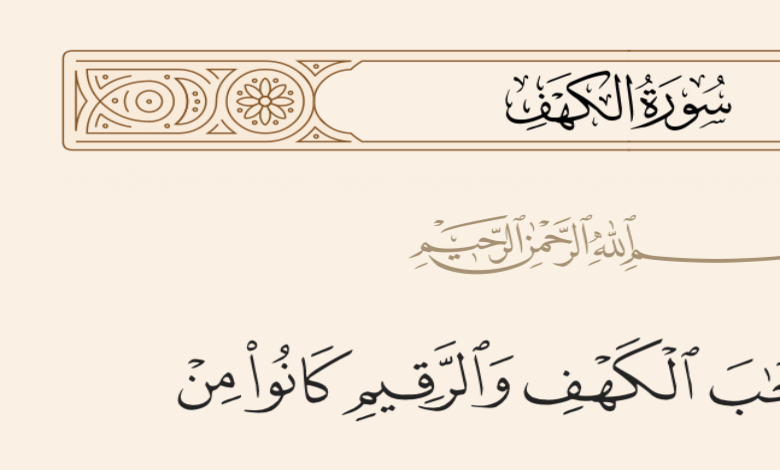 سُورَةُ الكَهْفِ
ـمِ ٱللَّهِ ٱلرَّحْمَٰنِ ٱلرَّحِيمِ
ـَٰبَ ٱلْكَهْفِ وَٱلرَّقِيمِ كَانُوا۟ مِنْ